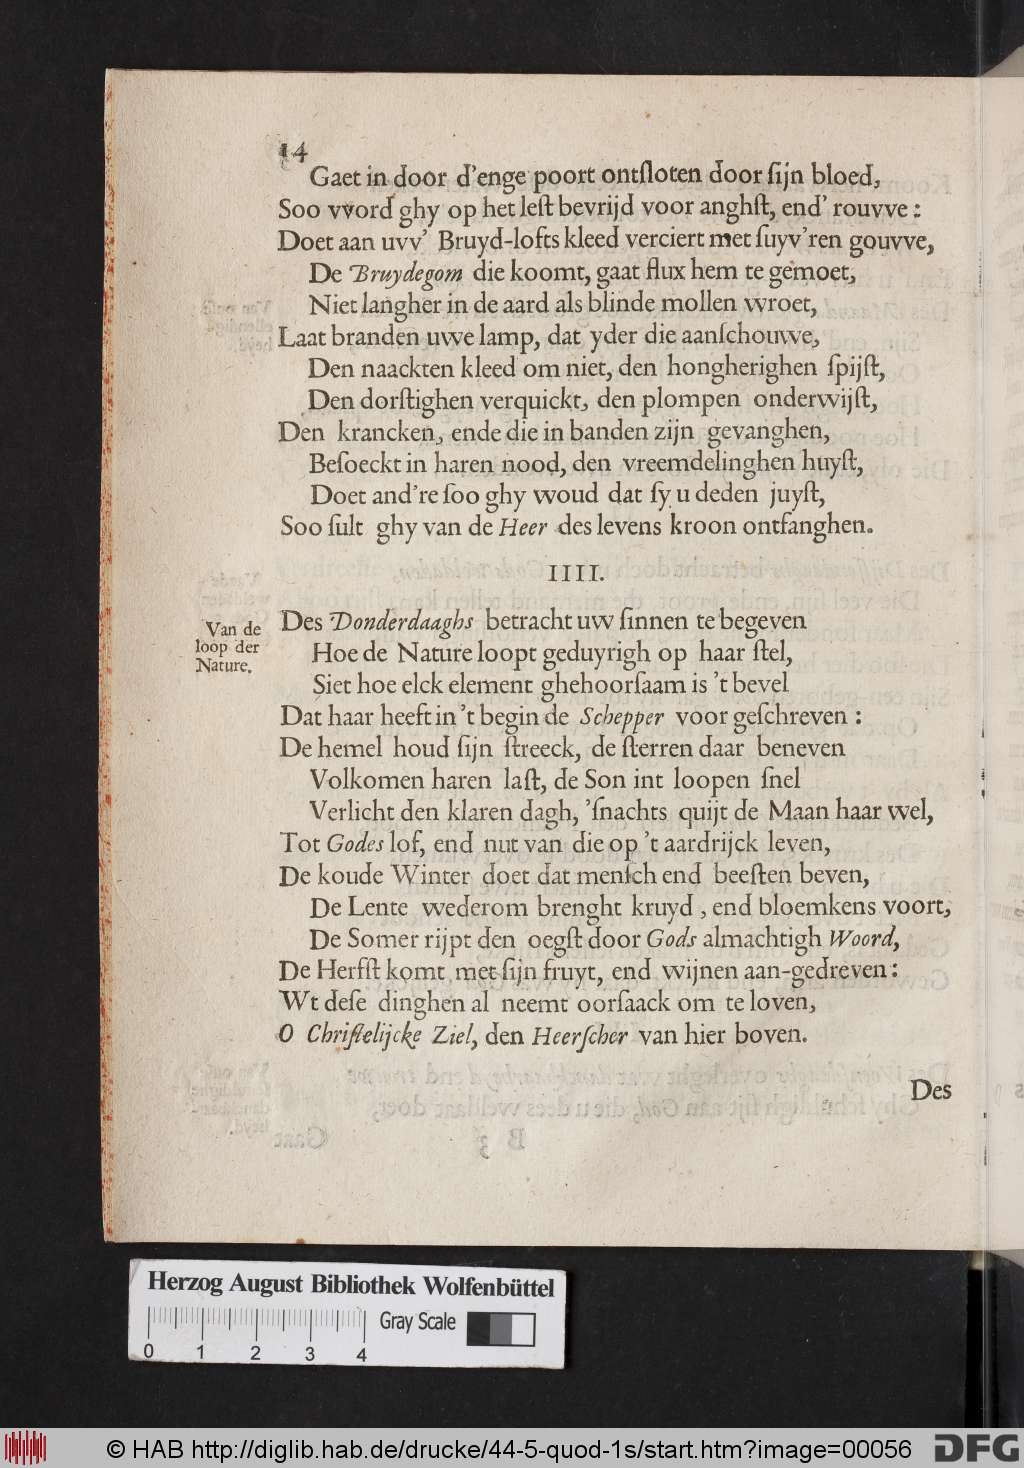 14
Gaet in door d'enge poort ontſloten door ſijn bloed,
Soo vvord ghy op het leſt bevrijd voor anghſt, end' rouvve:
Doet aan uvv' Bruyd-lofts kleed verciert met ſuyv'ren gouvve,
De Bruydegom die koomt, gaat flux hem te gemoet,
Niet langher in de aard als blinde mollen wroet,
Laat branden uwe lamp, dat yder die aanſchouwe,
Den naackten kleed om niet, den hongherighen ſpijſt,
Den dorſtighen verquickt, den plompen onderwijſt,
Den krancken, ende die in banden zijn gevanghen,
Beſoeckt in haren nood, den vreemdelinghen huyſt,
Doet and're ſoo ghy woud dat ſy u deden juyſt,
Soo ſult ghy van de Heer des levens kroon ontfanghen.
IIII.
Van de
loop der
Nature.
Des Donderdaaghs betracht uw ſinnen te begeven
Hoe de Nature loopt geduyrigh op haar ſtel,
Siet hoe elck element ghehoorſaam is 't bevel
Dat haar heeft in 't begin de Schepper voor geſchreven:
De hemel houd ſijn ſtreeck, de ſterren daar beneven
Volkomen haren laſt, de Son int loopen ſnel
Verlicht den klaren dagh, 'ſnachts quijt de Maan haar wel,
Tot Godes lof, end nut van die op 't aardrijck leven,
De koude Winter doet dat menſch end beeſten beven,
De Lente wederom brenght kruyd, end bloemkens voort,
De Somer rijpt den oegſt door Gods almachtigh Woord,
De Herfſt komt met ſijn fruyt, end wijnen aan-gedreven:
Wt deſe dinghen al neemt oorſaack om te loven,
O Chriſtelijcke Ziel, den Heerſcher van hier boven.
Des
Herzog August Bibliothek Wolfenbüttel
Gray Scale
0 1 2 3 4
© HAB http://diglib.hab.de/drucke/44-5-quod-1s/start.htm?image=00056
DFG